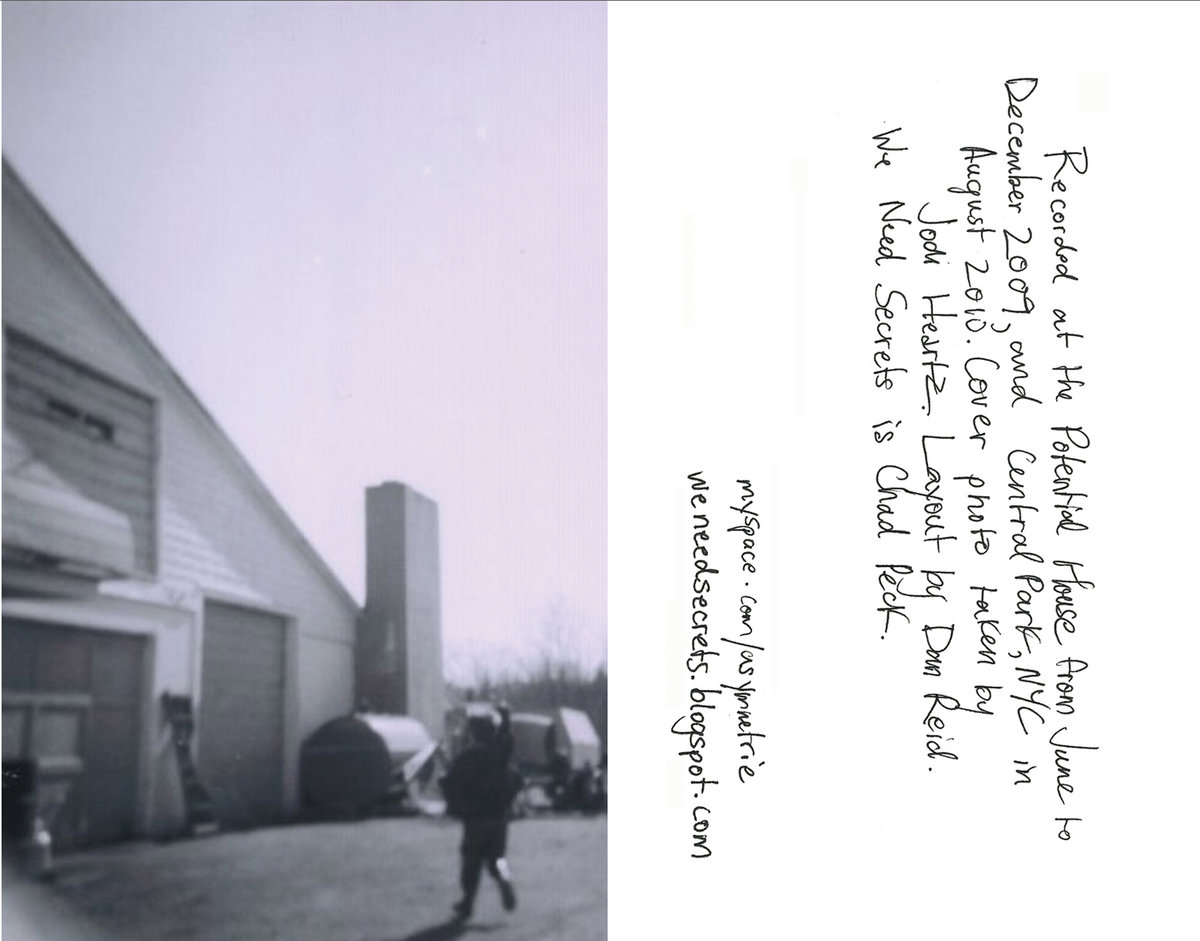 Recorded at the Potential House from June to
December 2009, and Central Park, NYC in
August 2010. Cover photo taken by
Jodi Heartz. Layout by Dan Reid.
We Need Secrets is Chad Peck.
myspace.com/asymmetrie
weneedsecrets.blogspot.com